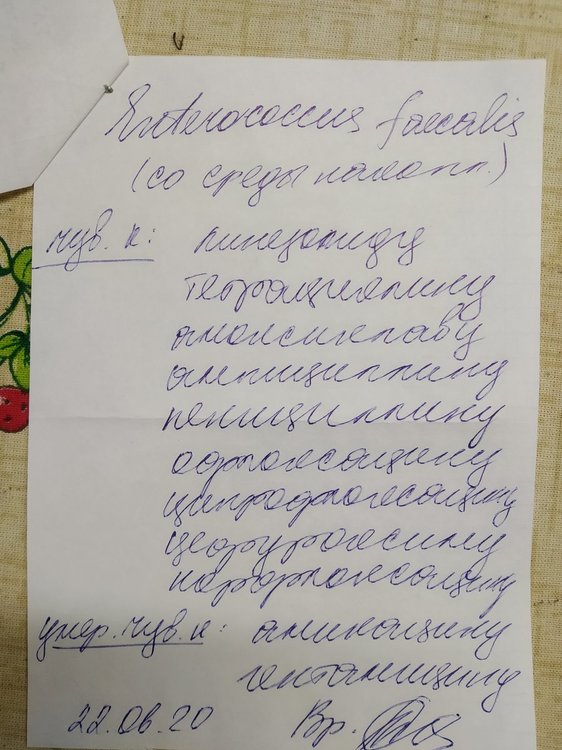 Enterococcus faecalis
(со среды накопл.)
чув. к: линезолиду
тетрациклину
амоксиклаву
ампициллину
пенициллину
офлоксацину
ципрофлоксацину
цефуроксиму
норфлоксацину
умер. чув. к: амикацину
гентамицину
22.06.20 Вр.